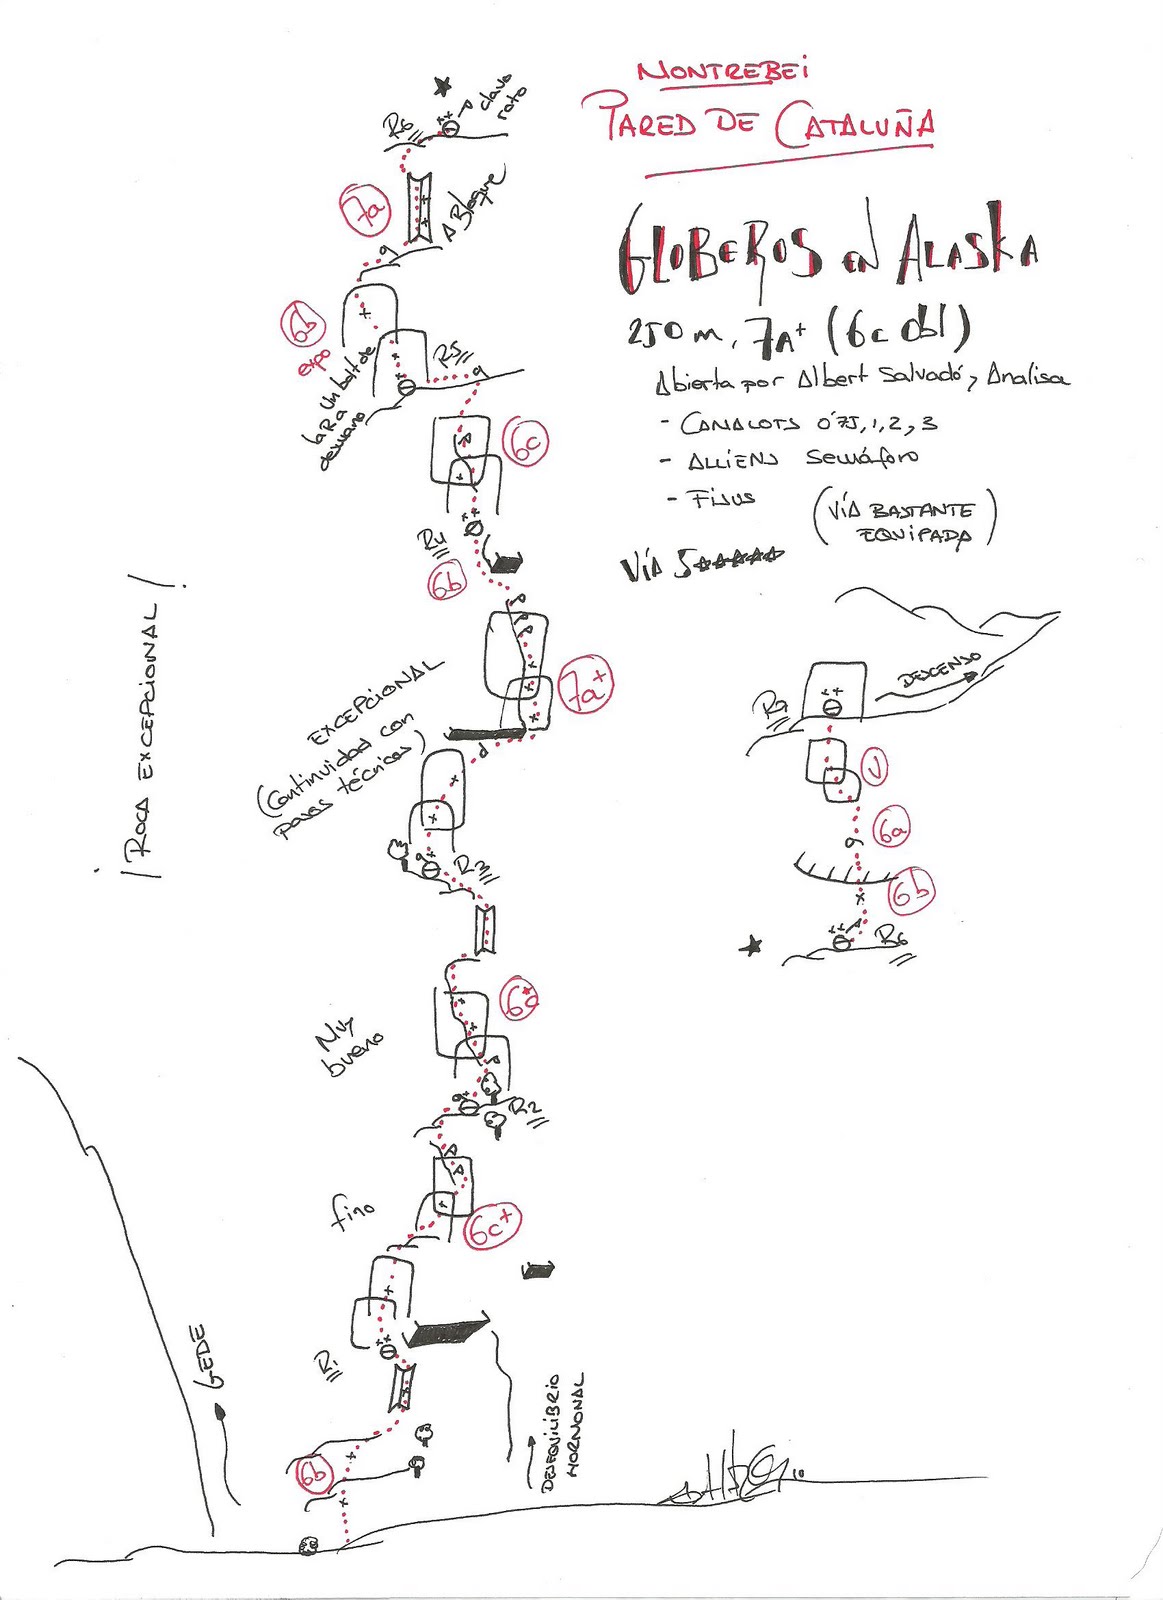 MONTREBEI
PARED DE CATALUÑA
GLOBEROS EN ALASKA
250 m, 7A+ (6c obl)
Abierta por Albert Salvadó, Analisa
- CAMALOTS 0'75, 1, 2, 3
- ALLIENS Semáforo
- FISUS
(VÍA BASTANTE
EQUIPADA)
VÍA 5★★★★★
★
clavo
roto
R6
7a
Bloque
6b
expo
Un bolt de
la R a
desmano
R5
6c
R4
6b
7a+
EXCEPCIONAL
(Continuidad con
pasos técnicos)
¡ROCA EXCEPCIONAL!
R3
6a
Muy
bueno
R2
fino
6c+
R1
6b
GEDE
DESEQUILIBRIO
HORMONAL
DESCENSO
R7
V
6a
6b
★
R6
10